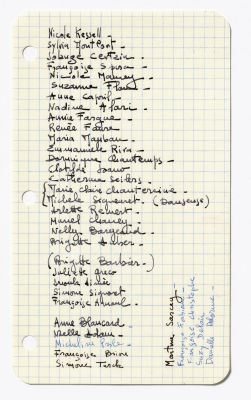 Nicole Kessell -
Sylvia Montfort -
Solange Certain -
Françoise Spira -
Nicole Maurey -
Suzanne Flon -
Anne Capril -
Nadine Alari -
Annie Fargue -
Renée Faure -
Maria Mauban -
Emmanuele Riva -
Dominique Chautemps -
Clotilde Joano
Catherine Sellers -
Marie Chris
(Michele Signoret - (Danseuse)
Arlette Remert -
Muriel Chaney -
Nelly Borgeaud -
Brigitte Auber -
(Brigitte Barbier -)
Juliette Greco
Anouk Aimée -
Simone Signoret
Françoise Arnoul -
Anne Blancard -
Noelle Adam -
Micheline Presle -
Françoise Brion
Simone Turck
Martine Sarcey -
Françoise
Françoise Christophe
Suzy Delair
Danielle Delorme -